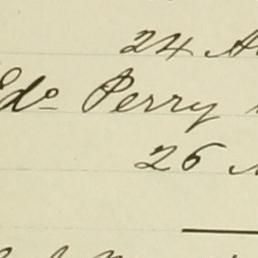 24 A
Edo Perry
26